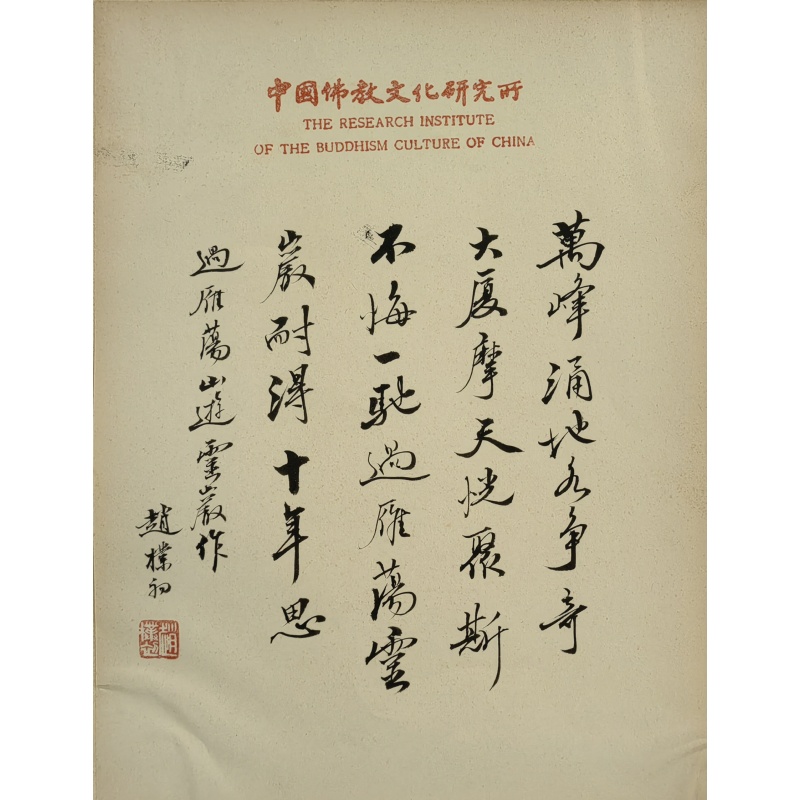 中國佛教文化研究所
THE RESEARCH INSTITUTE
OF THE BUDDHISM CULTURE OF CHINA
萬峰涌地各争奇
大厦摩天恍聚斯
不悔一馳過雁蕩靈
巖耐得十年思
過雁蕩山遊靈巖作
趙樸初
趙樸初